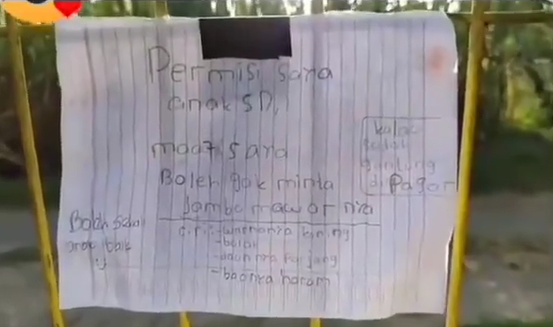 Permisi saya
anak SD,
maaf saya
Boleh gak minta
Jambu mawar nya
kalau
boleh
gantung
di Pagar
Boleh
anak baik
:)
ciri : - warnanya kuning
- bulat
- daunnya panjang
- baunya harum